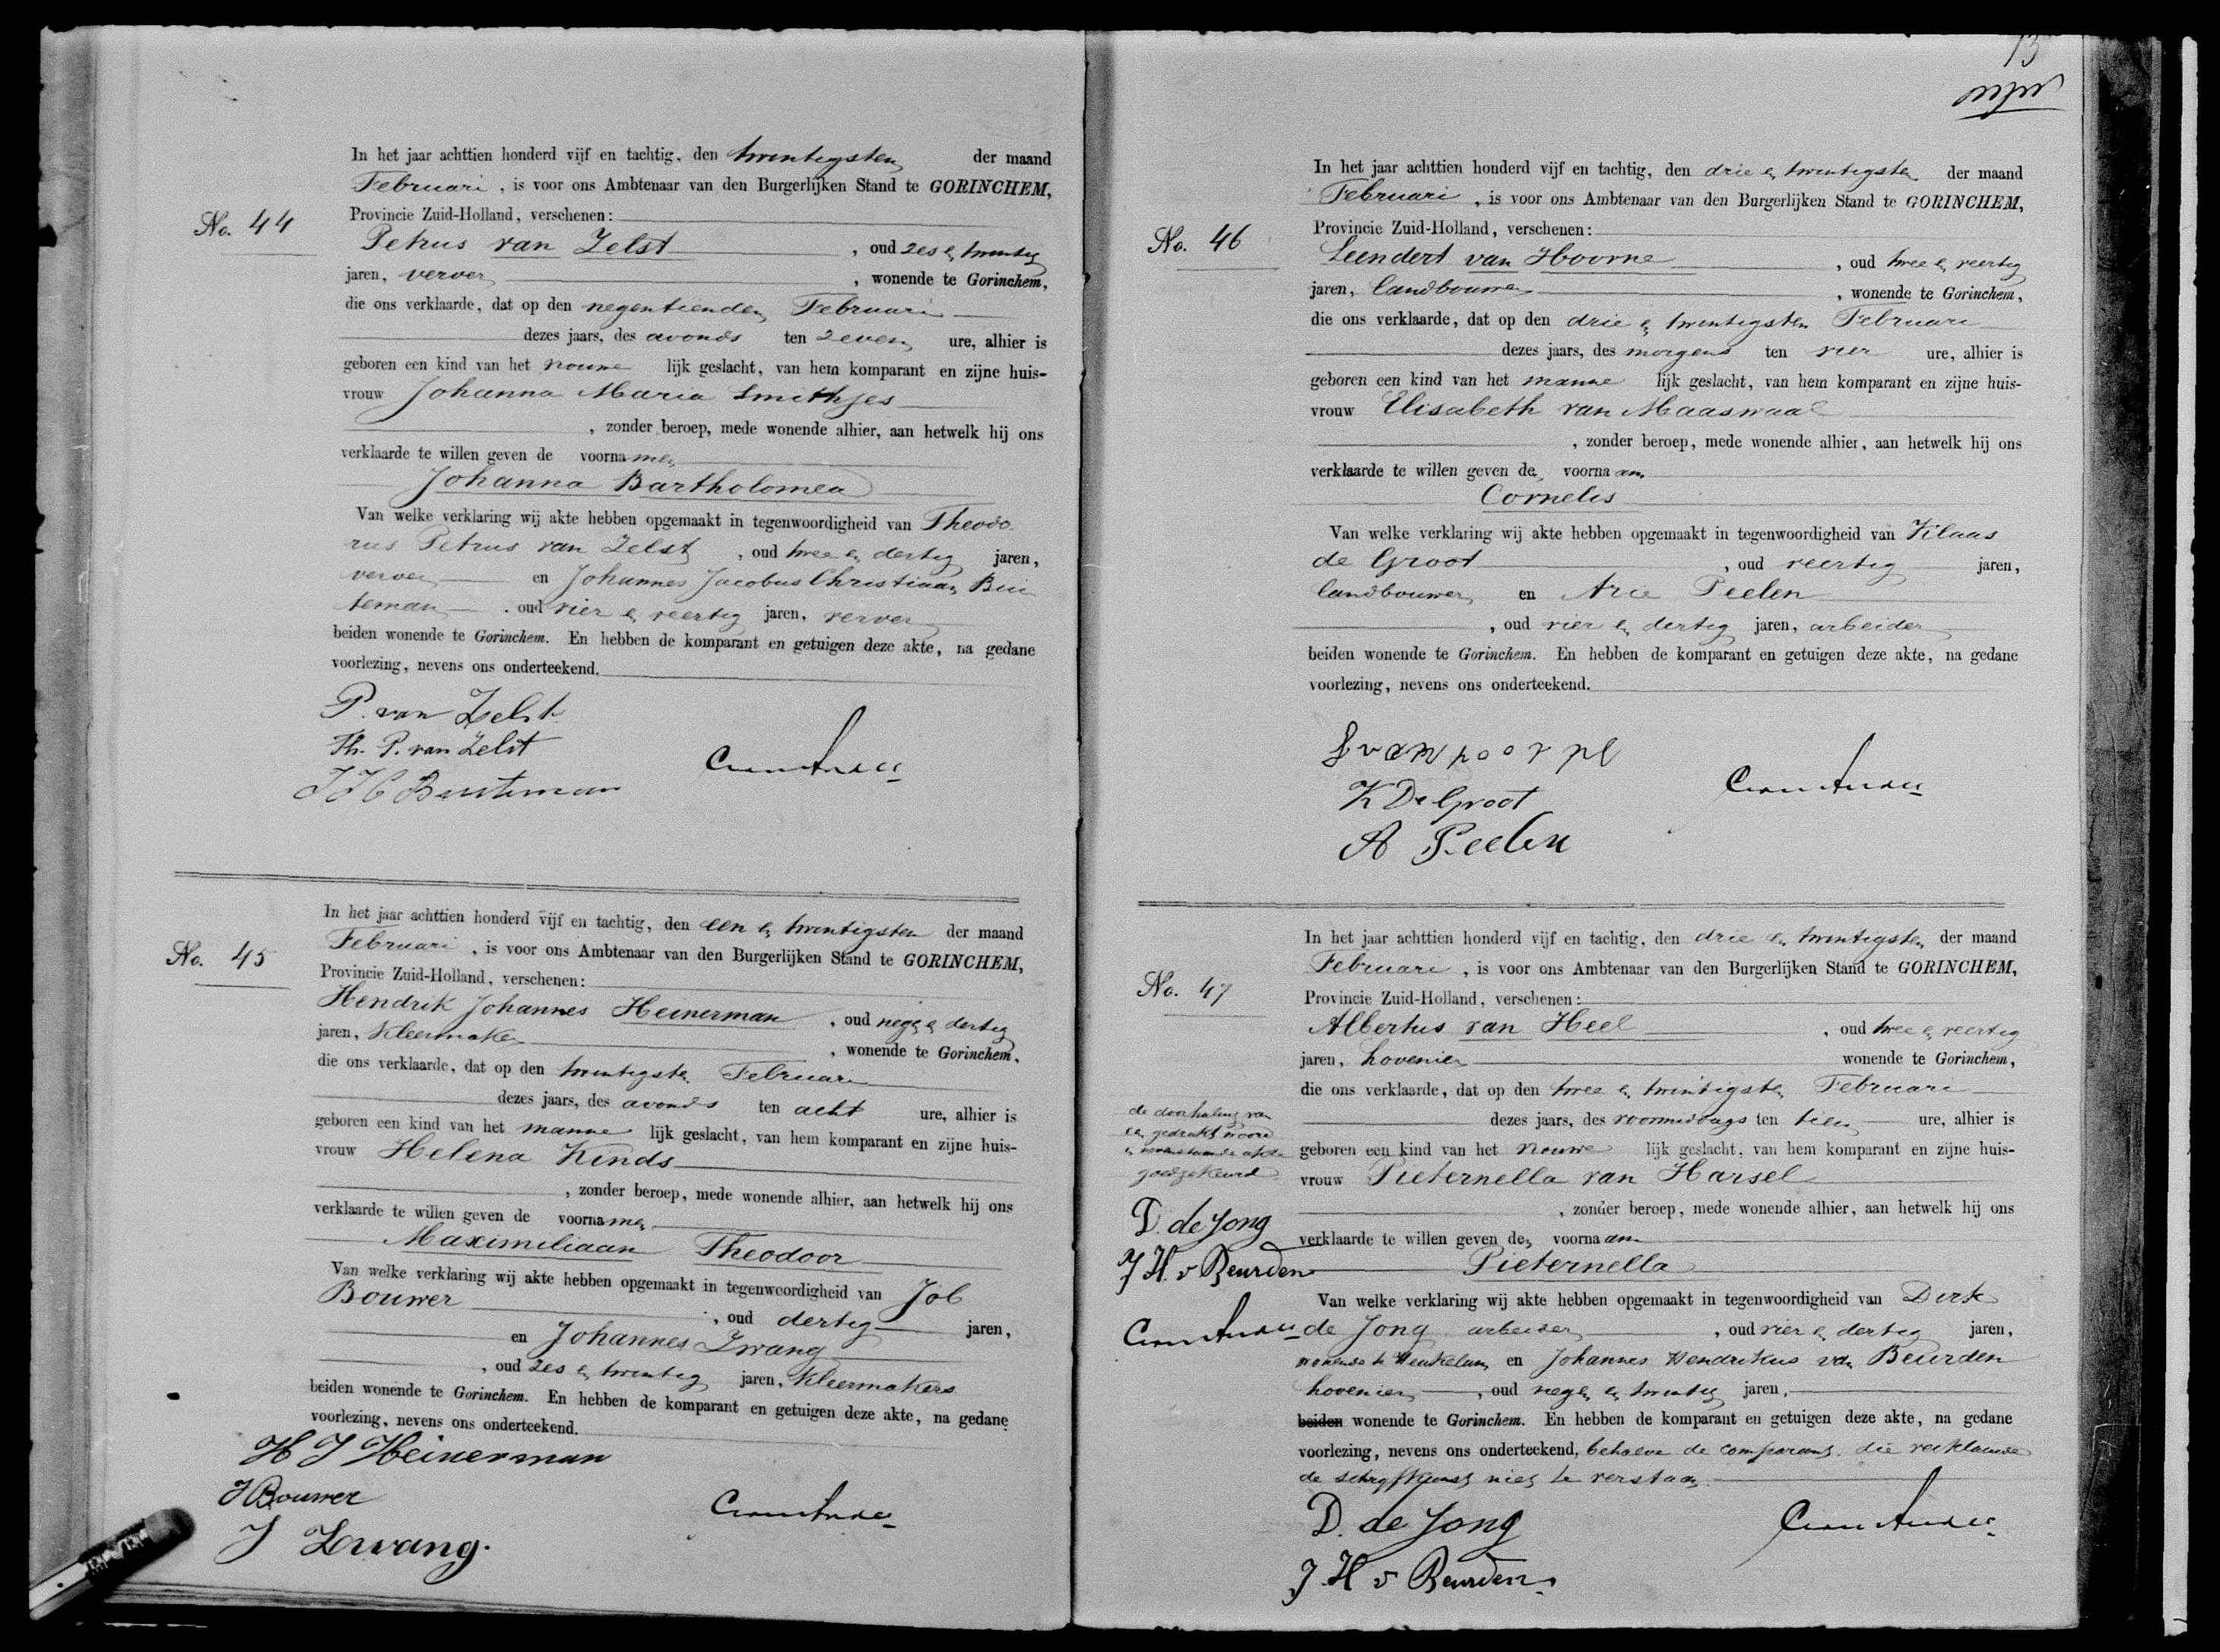 In het jaar achttien honderd vijf en tachtig, den twintigsten der maand
Februari, is voor ons Ambtenaar van den Burgerlijken Stand te GORINCHEM,
No. 44
Provincie Zuid-Holland, verschenen:
Petrus van Zelst, oud zes en twintig
jaren, verver, wonende te Gorinchem,
die ons verklaarde, dat op den negentienden Februari
dezes jaars, des avonds ten zeven ure, alhier is
geboren een kind van het vrouwe lijk geslacht, van hem komparant en zijne huis-
vrouw Johanna Maria Smithjes
, zonder beroep, mede wonende alhier, aan hetwelk hij ons
verklaarde te willen geven de voornamen
Johanna Bartholomea
Van welke verklaring wij akte hebben opgemaakt in tegenwoordigheid van Theodo
rus Petrus van Zelst, oud twee en dertig jaren,
verver en Johannes Jacobus Christiaan Bui
teman, oud vier en veertig jaren, verver
beiden wonende te Gorinchem. En hebben de komparant en getuigen deze akte, na gedane
voorlezing, nevens ons onderteekend.
P. van Zelst
Th. P. van Zelst
In het jaar achttien honderd vijf en tachtig, den een en twintigsten der maand
Februari, is voor ons Ambtenaar van den Burgerlijken Stand te GORINCHEM,
No. 45
Provincie Zuid-Holland, verschenen:
Hendrik Johannes Heinerman, oud negen en dertig
jaren, Kleermaker, wonende te Gorinchem,
die ons verklaarde, dat op den twintigsten Februari
dezes jaars, des avonds ten acht ure, alhier is
geboren een kind van het manne lijk geslacht, van hem komparant en zijne huis-
vrouw Helena Kinds
, zonder beroep, mede wonende alhier, aan hetwelk hij ons
verklaarde te willen geven de voornamen
Maximiliaan Theodoor
Van welke verklaring wij akte hebben opgemaakt in tegenwoordigheid van Job
Bouwer, oud dertig jaren,
en Johannes Zwang
, oud zes en twintig jaren, Kleermakers
beiden wonende te Gorinchem. En hebben de komparant en getuigen deze akte, na gedane
voorlezing, nevens ons onderteekend.
H J Heinerman
J Bouwer
J Zwang.
13
In het jaar achttien honderd vijf en tachtig, den drie en twintigsten der maand
Februari, is voor ons Ambtenaar van den Burgerlijken Stand te GORINCHEM,
No. 46
Provincie Zuid-Holland, verschenen:
Leendert van Hoorne, oud twee en veertig
jaren, landbouwer, wonende te Gorinchem,
die ons verklaarde, dat op den drie en twintigsten Februari
dezes jaars, des morgens ten vier ure, alhier is
geboren een kind van het manne lijk geslacht, van hem komparant en zijne huis-
vrouw Elisabeth van Maaswaal
, zonder beroep, mede wonende alhier, aan hetwelk hij ons
verklaarde te willen geven den voornaam
Cornelis
Van welke verklaring wij akte hebben opgemaakt in tegenwoordigheid van Klaas
de Groot, oud veertig jaren,
landbouwer, en Arie Peelen
, oud vier en dertig jaren, arbeider
beiden wonende te Gorinchem. En hebben de komparant en getuigen deze akte, na gedane
voorlezing, nevens ons onderteekend.
K De Groot
A Peelen
In het jaar achttien honderd vijf en tachtig, den drie en twintigsten der maand
Februari, is voor ons Ambtenaar van den Burgerlijken Stand te GORINCHEM,
No. 47
Provincie Zuid-Holland, verschenen:
Albertus van Heel, oud twee en veertig
jaren, hovenier wonende te Gorinchem,
die ons verklaarde, dat op den twee en twintigsten Februari
dezes jaars, des voormiddags ten tien ure, alhier is
geboren een kind van het vrouwe lijk geslacht, van hem komparant en zijne huis-
vrouw Pieternella van Harsel
, zonder beroep, mede wonende alhier, aan hetwelk hij ons
verklaarde te willen geven den voornaam
Pieternella
Van welke verklaring wij akte hebben opgemaakt in tegenwoordigheid van Dirk
de Jong arbeider, oud vier en dertig jaren,
wonende te Heukelum en Johannes Hendrikus van Beurden
hovenier, oud negen en twintig jaren,
beiden wonende te Gorinchem. En hebben de komparant en getuigen deze akte, na gedane
voorlezing, nevens ons onderteekend, behalve de comparant die verklaarde
de schrijfkunst niet te verstaan
de doorhaling van
een gedrukt woord
in bovenstaande akte
goedgekeurd
D. de Jong
J H. v Beurden
D. de Jong
J. H v Beurden